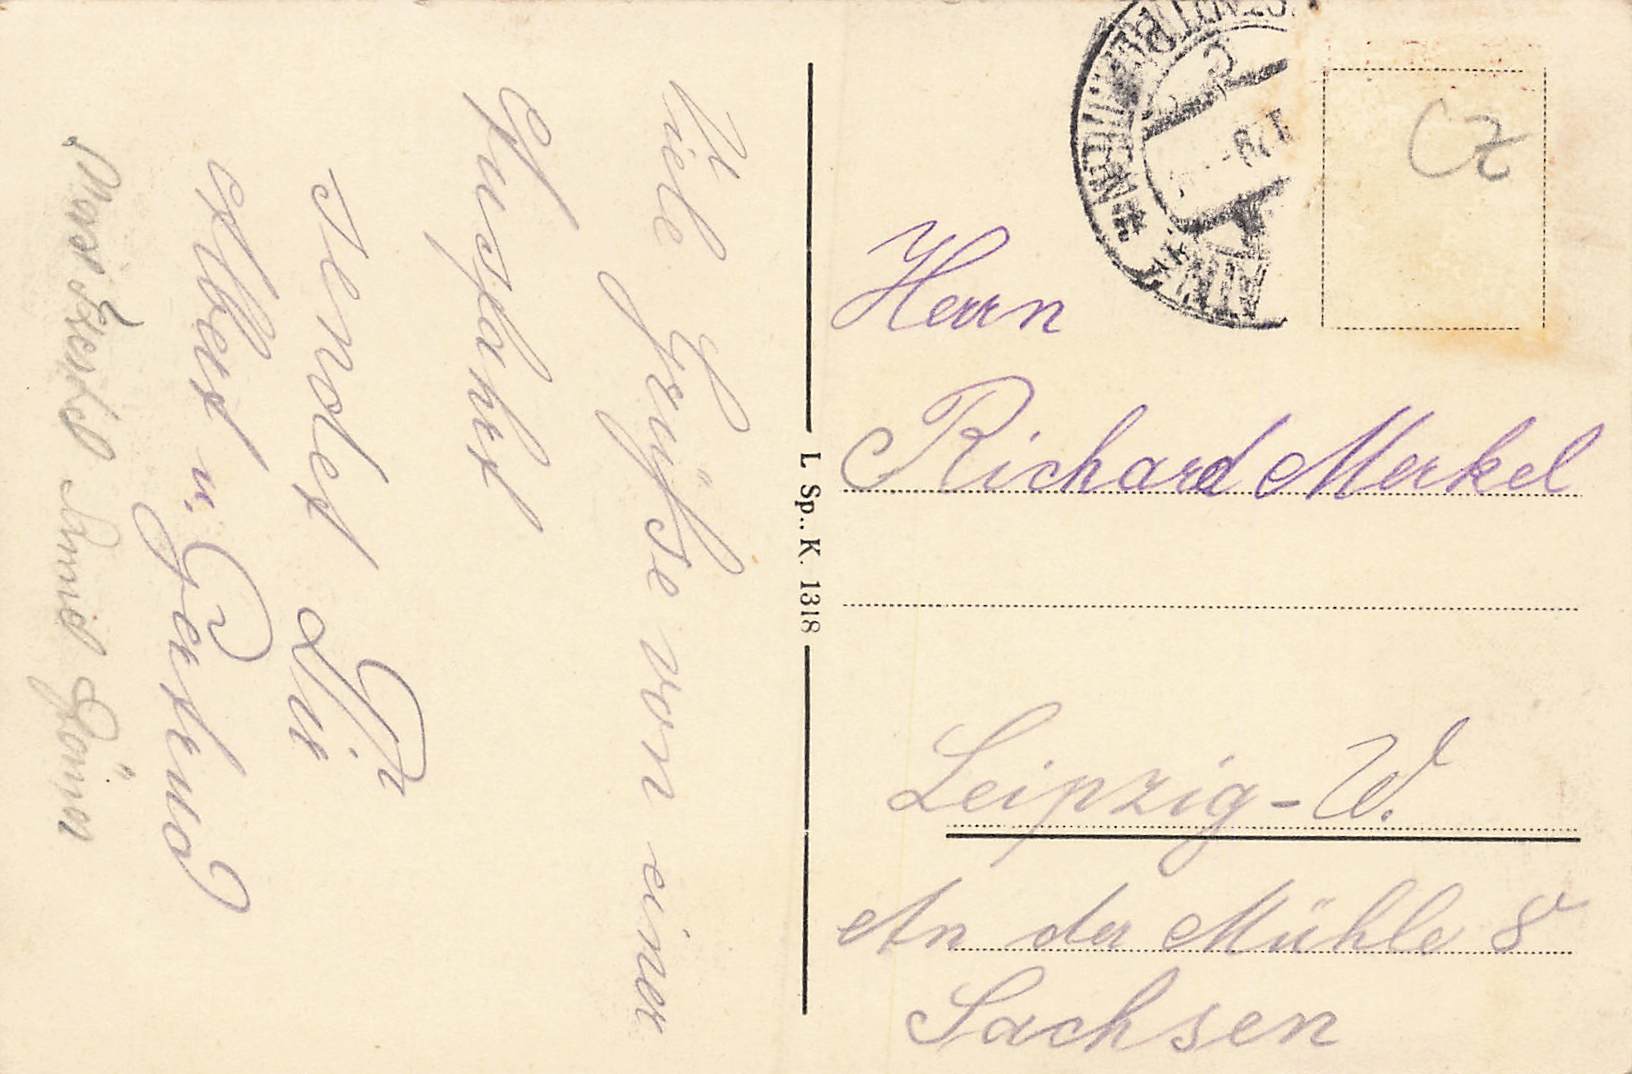 Viele Grüsse von einer
Ausfahrt
sendet Dir
Albert u. Gertrud
L. Sp., K. 1318
CZ
Herrn
Richard Merkel
Leipzig-W.
An der Mühle 8
Sachsen